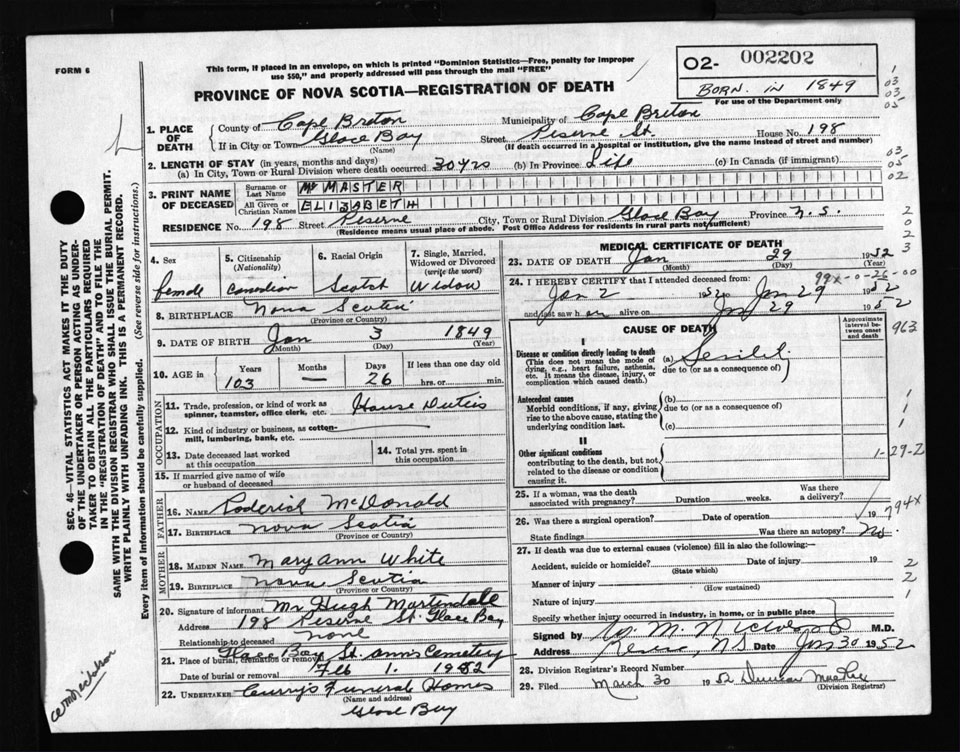 FORM 6
This form, if placed in an envelope, on which is printed "Dominion Statistics—Free, penalty for improper
use $50," and properly addressed will pass through the mail "FREE"
PROVINCE OF NOVA SCOTIA—REGISTRATION OF DEATH
02- 002202
BORN. IN 1849
For use of the Department only
1. PLACE OF DEATH
County of Cape Breton Municipality of Cape Breton
If in City or Town Glace Bay Street Reserve St. House No. 198
(Name) (If death occurred in a hospital or institution, give the name instead of street and number)
2. LENGTH OF STAY (in years, months and days)
(a) In City, Town or Rural Division where death occurred 30 yrs (b) In Province Life (c) In Canada (if immigrant)
3. PRINT NAME OF DECEASED
Surname or Last Name McMASTER
All Given or Christian Names ELIZABETH
RESIDENCE No. 198 Street Reserve City, Town or Rural Division Glace Bay Province N.S.
(Residence means usual place of abode. Post Office Address for residents in rural parts not sufficient)
4. Sex 5. Citizenship (Nationality) 6. Racial Origin 7. Single, Married, Widowed or Divorced (write the word)
female Canadian Scotch Widow
8. BIRTHPLACE Nova Scotia
(Province or Country)
9. DATE OF BIRTH Jan 3 1849
(Month) (Day) (Year)
10. AGE in Years Months Days If less than one day old
103 — 26 hrs. or min.
OCCUPATION
11. Trade, profession, or kind of work as spinner, teamster, office clerk, etc. House Duties
12. Kind of industry or business, as cotton-mill, lumbering, bank, etc.
13. Date deceased last worked at this occupation
14. Total yrs. spent in this occupation
15. If married give name of wife or husband of deceased
FATHER
16. NAME Roderick McDonald
17. BIRTHPLACE Nova Scotia
(Province or Country)
MOTHER
18. MAIDEN NAME Mary Ann White
19. BIRTHPLACE Nova Scotia
(Province or Country)
20. Signature of informant Mr Hugh Martindale
Address 198 Reserve St. Glace Bay
Relationship to deceased none
21. Place of burial, cremation or removal Glace Bay St. Anns Cemetery
Date of burial or removal Feb 1. 1952
22. UNDERTAKER Curry's Funeral Homes
(Name and address)
Glace Bay
MEDICAL CERTIFICATE OF DEATH
23. DATE OF DEATH Jan 29 1952
(Month) (Day) (Year)
24. I HEREBY CERTIFY that I attended deceased from:
99x-0-26-00
Jan 2 1952 to Jan 29 1952
and last saw her alive on Jan 29 1952
CAUSE OF DEATH
Approximate interval between onset and death
I
Disease or condition directly leading to death
(This does not mean the mode of dying, e.g., heart failure, asthenia, etc. It means the disease, injury, or complication which caused death.)
(a)
due to (or as a consequence of)
Antecedent causes
Morbid conditions, if any, giving rise to the above cause, stating the underlying condition last.
(b)
due to (or as a consequence of)
(c)
II
Other significant conditions
contributing to the death, but not related to the disease or condition causing it.
25. If a woman, was the death associated with pregnancy? Duration weeks. Was there a delivery?
26. Was there a surgical operation? Date of operation 19
794x
State findings Was there an autopsy? No.
27. If death was due to external causes (violence) fill in also the following:—
Accident, suicide or homicide? Date of injury 19
(State which)
Manner of injury
(How sustained)
Nature of injury
Specify whether injury occurred in industry, in home, or in public place
Signed by M.D.
Address Reserve, N.S. Date Jan 30 1952
28. Division Registrar's Record Number
29. Filed March 30 1952 Duncan
(Division Registrar)
SEC. 46—VITAL STATISTICS ACT MAKES IT THE DUTY
OF THE UNDERTAKER OR PERSON ACTING AS UNDER-
TAKER TO OBTAIN ALL THE PARTICULARS REQUIRED
IN THE "REGISTRATION OF DEATH" AND TO FILE THE
SAME WITH THE DIVISION REGISTRAR WHO SHALL ISSUE THE BURIAL PERMIT.
WRITE PLAINLY WITH UNFADING INK. THIS IS A PERMANENT RECORD.
Every item of information should be carefully supplied. (See reverse side for instructions.)
1
03
03
05
03
05
02
2
0
2
3
963
1
1
1
1-29-2
2
2
1